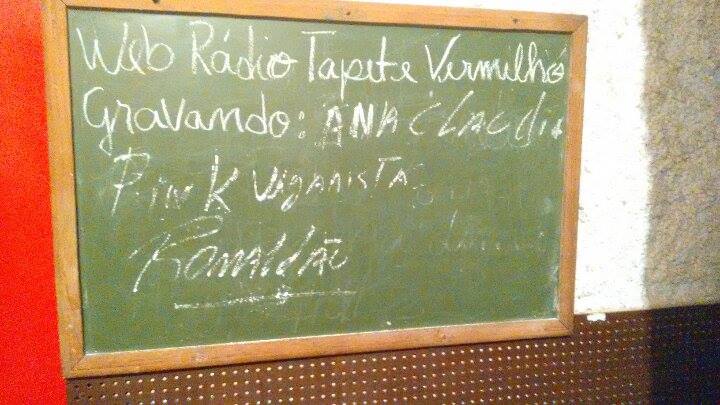 Web Rádio Tapete Vermelho
Gravando: ANA CLAUDIA
Pink VIGARISTA
Ronaldão